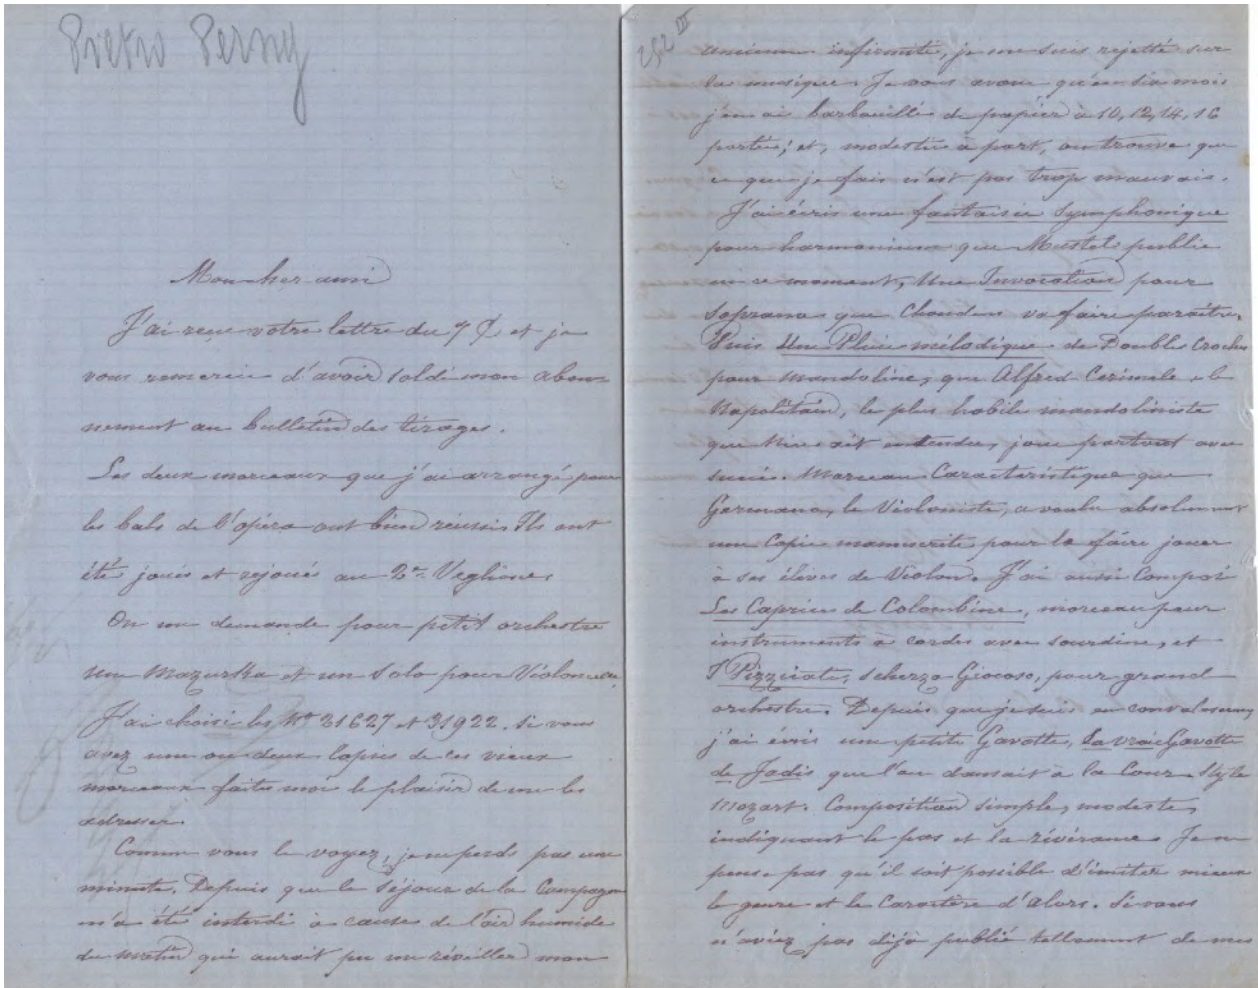 Pietro Perny
Mon cher ami
J'ai reçu votre lettre du 7 Ct et je
vous remercie d'avoir soldé mon abon-
nement au bulletin des tirages.
Les deux morceaux que j'ai arrangé pour
les bals de l'opéra ont bien réussis Ils ont
été joués et rejoués au 2e Veglione.
On me demande pour petit orchestre
une Mazurka et un solo pour Violoncelle.
J'ai choisi les Nos 31627 et 31922. Si vous
avez une ou deux copies de ces vieux
morceaux faites moi le plaisir de me les
adresser.
Comme vous le voyez, je ne perds pas une
minute. Depuis que le séjour de la Campagne
m'a été interdi à cause de l'air humide
du matin qui aurait pu me réveiller mon
252 III
ancienne infirmité, je me suis rejetté sur
la musique. Je vous avoue qu'en six mois
j'en ai barbouillé du papier à 10, 12, 14, 16
portées; et, modestie à part, on trouve que
ce que je fais n'est pas trop mauvais.
J'ai écris une fantaisie symphonique
pour harmonium que Mustel publie
en ce moment, Une Invocation pour
Soprano que Choudens va faire paraître.
Puis Une Pluie mélodique de Doubles Croches
pour mandoline, que Alfred Cerimele le
Napolitain, le plus habile mandoliniste
que Nice ait entendu, joue partout avec
succès. Morceau Caractéristique que
Germano, le Violoniste, a voulu absolument
une Copie manuscrite pour la faire jouer
à ses élèves de Violon. J'ai aussi Composé
Les Caprices de Colombine, morceau pour
instruments à cordes avec sourdine, et
I Pizzicate, scherzo Giocoso, pour grand
orchestre. Depuis que je suis en convalescence
j'ai écris une petite Gavotte, La vraie Gavotte
de Jadis que l'on dansait à la Cour. Style
Mozart. Composition simple, modeste,
indiquant le pas et la révérance. Je ne
pense pas qu'il soit possible d'imiter mieux
le genre et le Caractère d'alors. Si vous
n'aviez pas déjà publié tellement de mes